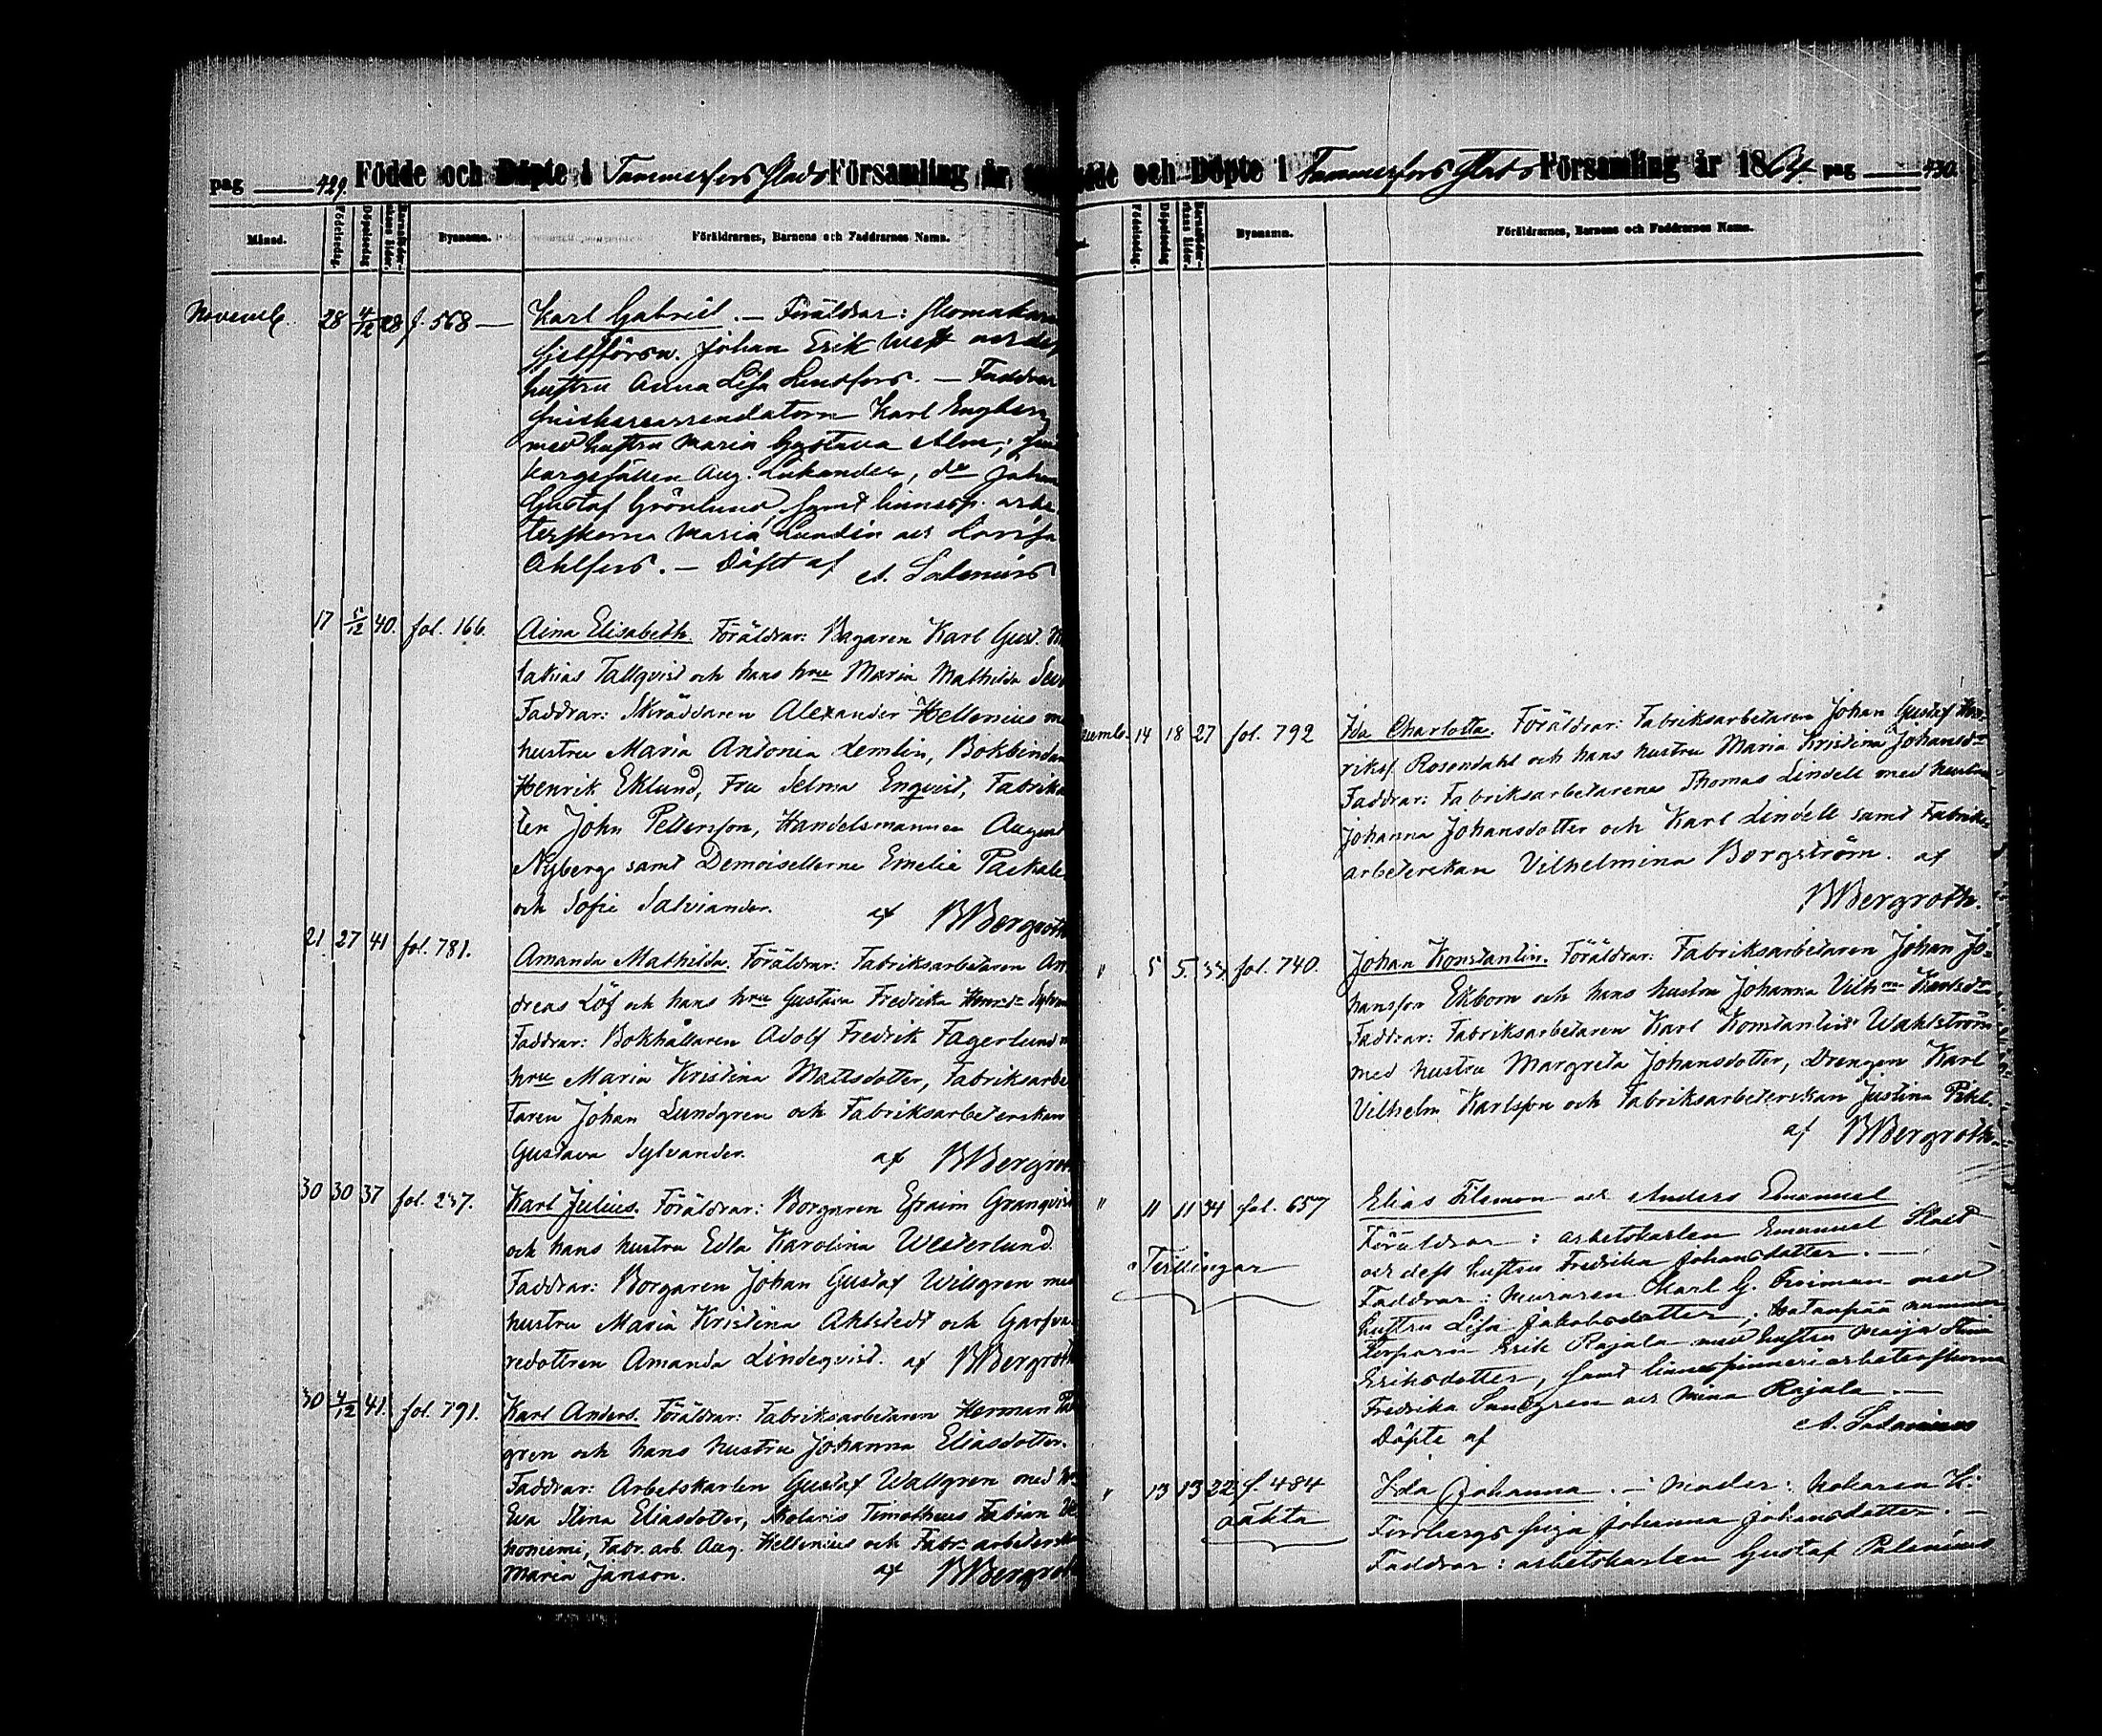 pag 429. Födde och Döpte i Tammerfors Stads Församling år
Månad. Födelsedag. Döpelsedag Barnaföderskans ålder. Bynamn. Föräldrarnes, Barnens och Faddrarnes Namn.
Novemb. 28 4/12 28 f. 568 — Karl Gabriel. — Föräldrar: Skomakare
sjelfförsv. Johan Erik West och dess
hustru Anna Lisa Lindfors. — Faddrar
Karl Engberg
med hustru Maria Gustava Alm;
Aug. Lukander, do Johan
Gustaf Grönlund, samt linnesp. arbe
terskorna Maria Lundin och Lovisa
Ahlfors. — Döpt af A. Salonius
17 5/12 40. fol. 166. Aina Elisabeth. Föräldrar: Bagaren Karl Gust. M
lakias Tallqvist och hans hru Maria Mathilda
Faddrar: Skräddaren Alexander Hellenius m
hustru Maria Antonia Lemlin, Bokbindar
Henrik Eklund, Fru Selma Enqvist, Fabrika
ten John Pettersson, Handelsmannen August
Nyberg samt Demoisellerne Emelie
och Sofie Salviander. af BBergroth
21 27 41 fol. 781. Amanda Mathilda. Föräldrar: Fabriksarbetaren An
dreas Löf och hans hru Gustava Fredrika
Faddrar: Bokhållaren Adolf Fredrik Fagerlund m
hru Maria Kristina Mattsdotter, Fabriksarbe
taren Johan Lundgren och Fabriksarbeterskan
Gustava Sylvander. af BBergroth
30 30 37 fol. 237. Karl Julius. Föräldrar: Borgaren Efraim Granqvist
och hans hustru Edla Karolina Westerlund.
Faddrar: Borgaren Johan Gustaf Willgren med
hustru Maria Kristina Ahlstedt och Garfva
redottren Amanda Lindeqvist. af BBergroth
30 4/12 41. fol. 791. Karl Anders. Föräldrar: Fabriksarbetaren Herman
gren och hans hustru Johanna Eliasdotter.
Faddrar: Arbetskarlen Gustaf Wallgren med
Eva Stina Eliasdotter, Skolaris Timotheus Fabian
honiemi, Fabr. arb. Aug. Hellenius och Fabr. arbetersk
Maria Janson. af BBergroth
dde och Döpte i Tammerfors Stads Församling år 1864. pag 430.
Födelsedag. Döpelsedag Barnaföderskans ålder. Bynamn. Föräldrarnes, Barnens och Faddrarnes Namn.
cemb. 14 18 27 fol. 792 Ida Charlotta. Föräldrar: Fabriksarbetaren Johan Gustaf Hen
riksf. Rosendahl och hans hustru Maria Kristina Johansdr
Faddrar: Fabriksarbetarene Thomas Lindell med hustru
Johanna Johansdotter och Karl Lindell samt Fabriks
arbeterskan Vilhelmina Borgström. af
BBergroth.
" 5 5. 33. fol. 740. Johan Konstantin. Föräldrar: Fabriksarbetaren Johan Jo
hansson Ekbom och hans hustru Johanna Vilhna Karlsdr
Faddrar: Fabriksarbetaren Karl Konstantin Wahlström
med hustru Margreta Johansdotter, Drengen Karl
Vilhelm Karlsson och Fabriksarbeterskan Justina Pihl.
af BBergroth.
" 11 11 34 fol. 657 Elias Filemon och Anders Emanuel
Tvillingar
Föräldrar: arbetskarlen Emanuel
och dess hustru Fredrika Johansdotter. —
Faddrar: muraren Karl G. Froiman med
hustru Lisa Jakobsdotter, Hatanpää nummer
torparn Erik Rajala med hustru Maija Stina
Eriksdotter, samt linnespinneriarbeterskorna
Fredrika Sundgren och Mina Rajala. —
Döpte af A. Salonius
" 13 13 22 f. 484 Ida Johanna. — Moder:
oäkta
Forsbergs piga Johanna Johansdotter. —
Faddrar: arbetskarlen Gustaf Palenius